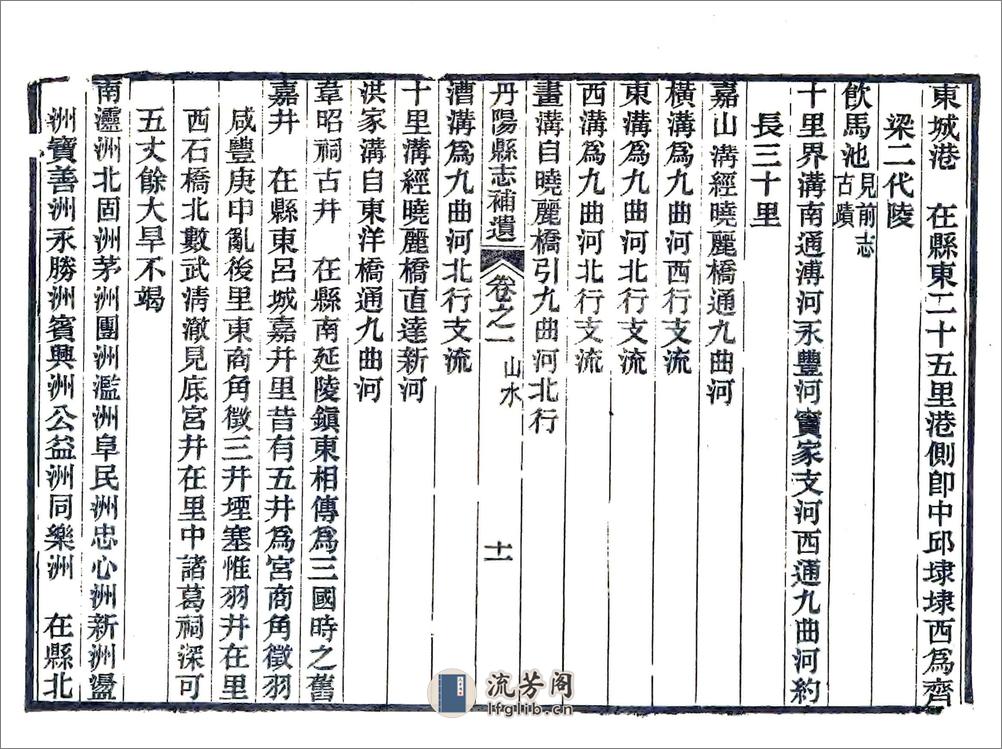 東城港　在縣東二十五里港側卽中邱埭埭西爲齊
梁二代陵
飮馬池見前志古蹟
十里界溝南通溥河永豐河竇家支河西通九曲河約
長三十里
嘉山溝經曉麗橋通九曲河
橫溝爲九曲河西行支流
東溝爲九曲河北行支流
西溝爲九曲河北行支流
畫溝自曉麗橋引九曲河北行
丹陽縣志補遺　卷之一　山水　十一
漕溝爲九曲河北行支流
十里溝經曉麗橋直達新河
洪家溝自東洋橋通九曲河
韋昭祠古井　在縣南延陵鎮東相傳爲三國時之舊
嘉井　在縣東呂城嘉井里昔有五井爲宮商角徵羽
咸豐庚申亂後里東商角徵三井堙塞惟羽井在里
西石橋北數武清澈見底宮井在里中諸葛祠深可
五丈餘大旱不竭
南灋洲北固洲茅洲團洲濫洲阜民洲忠心洲新洲盪
洲寶善洲永勝洲賓興洲公益洲同樂洲　在縣北
流芳阁
lfglib.cn